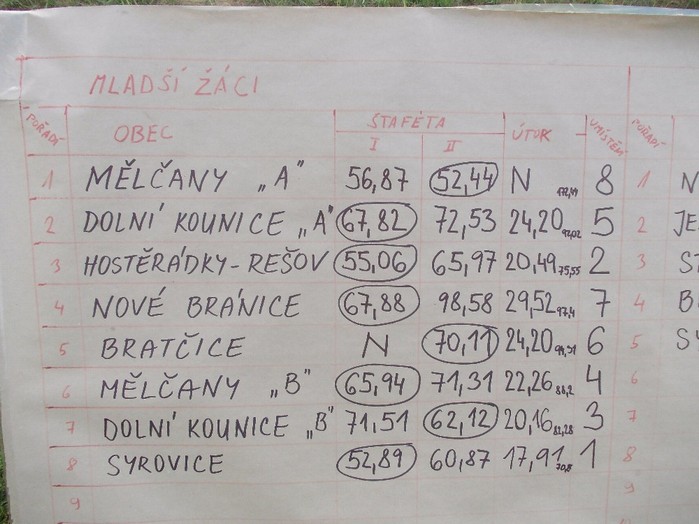 MLADŠÍ ŽÁCI
POŘADÍ OBEC ŠTAFETA I II ÚTOK UMÍSTĚNÍ POŘADÍ
1 MĚLČANY „A" 56,87 52,44 N 8 1 N
2 DOLNÍ KOUNICE „A" 67,82 72,53 24,20 92,02 5 2 JE
3 HOSTĚRÁDKY-REŠOV 55,06 65,97 20,49 75,55 2 3 ST
4 NOVÉ BRÁNICE 67,88 98,58 29,52 97,4 7 4 B
5 BRATČICE N 70,11 24,20 94,31 6 5 SY
6 MĚLČANY „B" 65,94 71,31 22,26 88,2 4 6
7 DOLNÍ KOUNICE „B" 71,51 62,12 20,16 82,28 3 7
8 SYROVICE 52,89 60,87 17,91 70,8 1 8
9 9